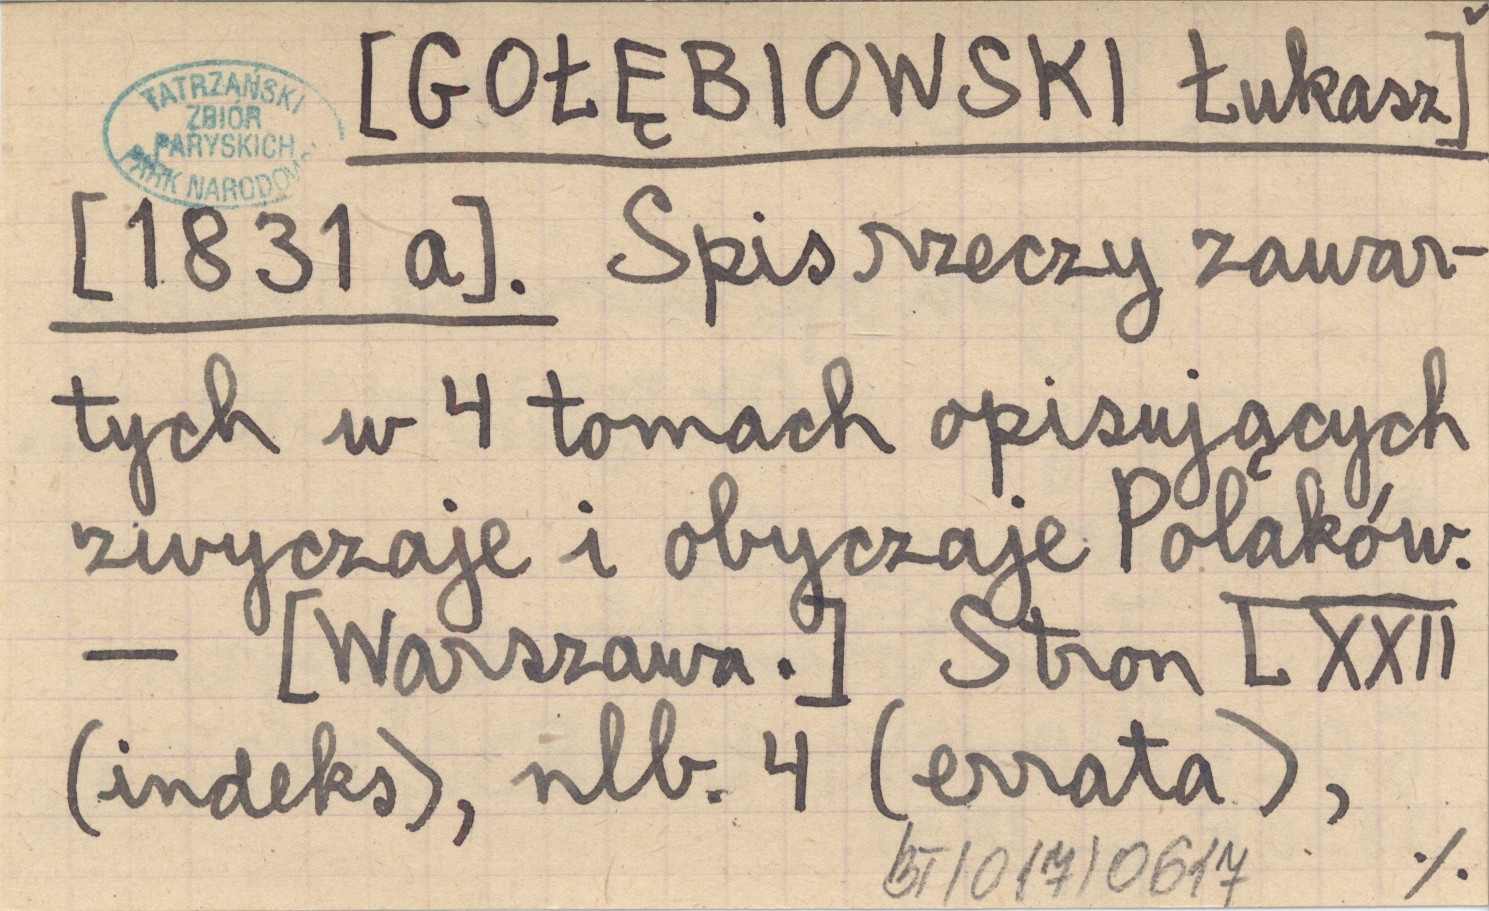 [GOŁĘBIOWSKI Łukasz]
TATRZAŃSKI
ZBIÓR
PARYSKICH
PARK NARODOWY
[1831 a]. Spis rzeczy zawar-
tych w 4 tomach opisujących
zwyczaje i obyczaje Polaków.
— [Warszawa.] Stron [XXII
(indeks), nlb. 4 (errata),
BT/017/0617
./.